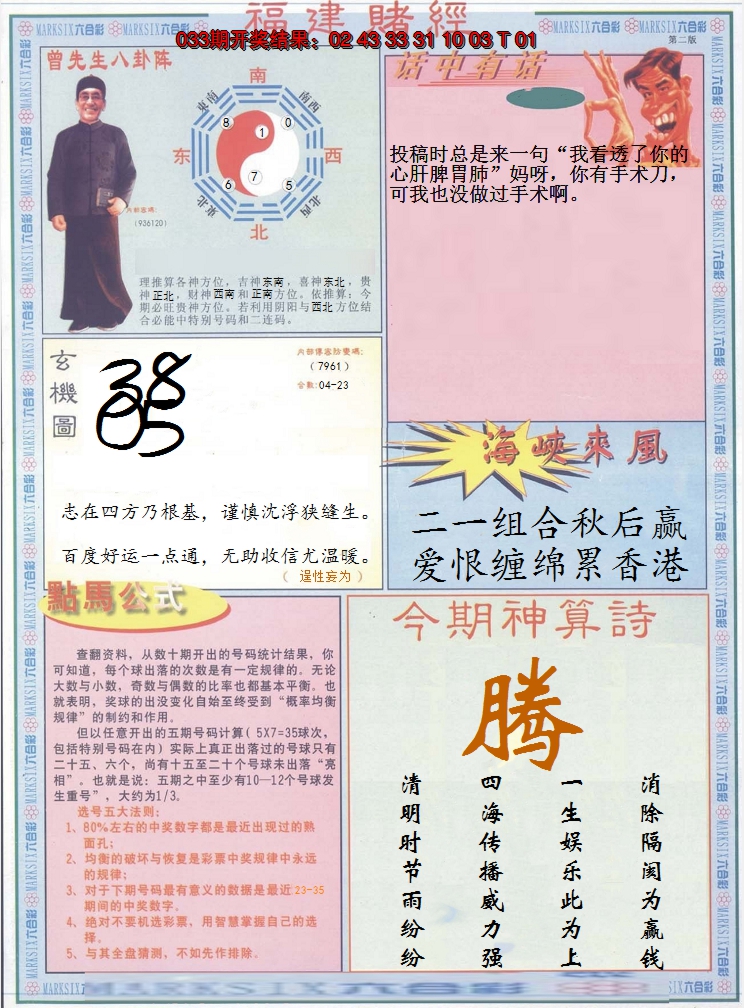 福建賭經
033期开奖结果：02 43 33 31 10 03 T 01
MARKSIX六合彩
第二版
曾先生八卦阵
南
東南
南西
8
1
0
东
西
6
7
5
東北
北西
北
内部密碼:
（936120）
理推算各神方位，吉神东南，喜神东北，贵
神正北，财神西南和正南方位。依推算：今
期必旺贵神方位。若利用阴阳与西北方位结
合必能中特别号码和二连码。
话中有话
投稿时总是来一句“我看透了你的
心肝脾胃肺”妈呀，你有手术刀，
可我也没做过手术啊。
玄機圖
（7961）
合数:04-23
志在四方乃根基，谨慎沈浮狭缝生。
百度好运一点通，无助收信尤温暖。
（ 逞性妄为 ）
海峽來風
二一组合秋后赢
爱恨缠绵累香港
點馬公式
查翻资料，从数十期开出的号码统计结果，你
可知道，每个球出落的次数是有一定规律的。无论
大数与小数，奇数与偶数的比率也都基本平衡。也
就表明，奖球的出没变化自始至终受到“概率均衡
规律”的制约和作用。
但以任意开出的五期号码计算( 5X7=35球次，
包括特别号码在内) 实际上真正出落过的号球只有
二十五、六个，尚有十五至二十个号球未出落“亮
相”。也就是说：五期之中至少有10—12个号球发
生重号”，大约为1/3。
选号五大法则：
1、80%左右的中奖数字都是最近出现过的熟
面孔；
2、均衡的破坏与恢复是彩票中奖规律中永远
的规律；
3、对于下期号码最有意义的数据是最近23-35
期间的中奖数字。
4、绝对不要机选彩票，用智慧掌握自己的选
择。
5、与其全盘猜测，不如先作排除。
今期神算詩
腾
消除隔阂为赢钱
一生娱乐此为上
四海传播威力强
清明时节雨纷纷